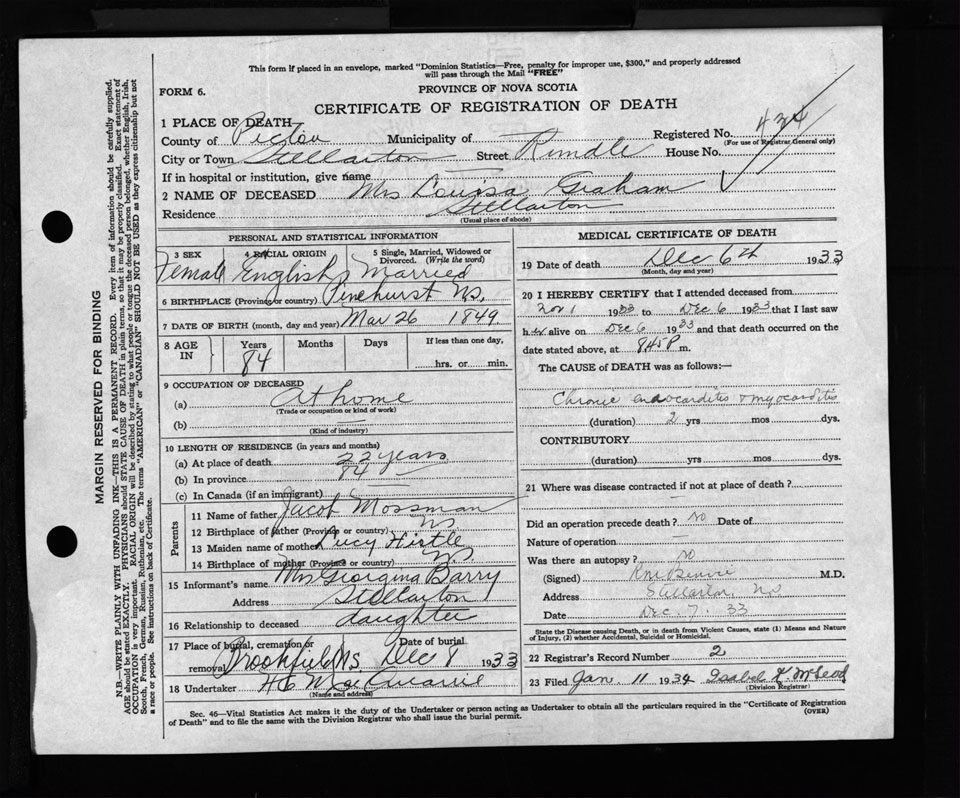 This form if placed in an envelope, marked "Dominion Statistics—Free, penalty for improper use, $300," and properly addressed
will pass through the Mail "FREE"
FORM 6.
PROVINCE OF NOVA SCOTIA
CERTIFICATE OF REGISTRATION OF DEATH
1 PLACE OF DEATH
County of Pictou Municipality of Registered No. 434
(For use of Registrar General only)
City or Town Stellarton Street Rundle House No.
If in hospital or institution, give name —
2 NAME OF DECEASED Mrs Louisa Graham
Residence Stellarton
(Usual place of abode)
PERSONAL AND STATISTICAL INFORMATION
3 SEX 4 RACIAL ORIGIN 5 Single, Married, Widowed or Divorced. (Write the word)
Female English Married
6 BIRTHPLACE (Province or country) Pinehurst N.S.
7 DATE OF BIRTH (month, day and year) Mar 26 1849
8 AGE IN Years Months Days If less than one day,
84 hrs. or min.
9 OCCUPATION OF DECEASED
(a) At home
(Trade or occupation or kind of work)
(b)
(Kind of industry)
10 LENGTH OF RESIDENCE (in years and months)
(a) At place of death 22 years
(b) In province 84
(c) In Canada (if an immigrant)
Parents
11 Name of father Jacob Mossman
12 Birthplace of father (Province or country) NS
13 Maiden name of mother Lucy Hirtle
14 Birthplace of mother (Province or country) NS
15 Informant's name Mrs Georgina Barry
Address Stellarton
16 Relationship to deceased daughter
17 Place of burial, cremation or removal Brookfield NS. Date of burial Dec 8 1933
18 Undertaker H C MacQuarrie
(Name and address)
MEDICAL CERTIFICATE OF DEATH
19 Date of death Dec 6th 1933
(Month, day and year)
20 I HEREBY CERTIFY that I attended deceased from
Nov 1 1933 to Dec 6 1933 that I last saw
her alive on Dec 6 1933 and that death occurred on the
date stated above, at 8.45 P m.
The CAUSE of DEATH was as follows:—
Chronic endocarditis & myocarditis
(duration) 2 yrs mos dys.
CONTRIBUTORY
(duration) yrs mos dys.
21 Where was disease contracted if not at place of death?
—
Did an operation precede death? no Date of
Nature of operation —
Was there an autopsy? no
(Signed) M.D.
Address Stellarton NS
Date Dec. 7. 33
State the Disease causing Death, or in death from Violent Causes, state (1) Means and Nature
of Injury, (2) whether Accidental, Suicidal or Homicidal.
22 Registrar's Record Number 2
23 Filed Jan. 11 1934 Isabel K McLeod
(Division Registrar)
Sec. 46—Vital Statistics Act makes it the duty of the Undertaker or person acting as Undertaker to obtain all the particulars required in the "Certificate of Registration
of Death" and to file the same with the Division Registrar who shall issue the burial permit. (OVER)
MARGIN RESERVED FOR BINDING
N.B.—WRITE PLAINLY WITH UNFADING INK—THIS IS A PERMANENT RECORD. Every item of information should be carefully supplied.
AGE should be stated EXACTLY. PHYSICIANS should STATE CAUSE OF DEATH in plain terms, so that it may be properly classified. Exact statement of
OCCUPATION is very important. RACIAL ORIGIN will be described by stating to what people or tongue the deceased person belonged, whether English, Irish,
Scotch, French, German, Russian, Ruthenian, etc. The terms "AMERICAN" or "CANADIAN" SHOULD NOT BE USED as they express citizenship but not
a race or people. See instructions on back of Certificate.